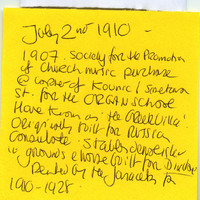 July 2nd 1910 -
1907. Society for the Promotion
of Church music purchase
@ corner of Kounic / Smetana
St. for the ORGAN SCHOOL
Have known as the 'GREEK VILLA'.
Originally built for RUSSIA
Consulate. Stables demolished
in grounds & house built for Director
Rented by the Janaceks for
1910-1928.